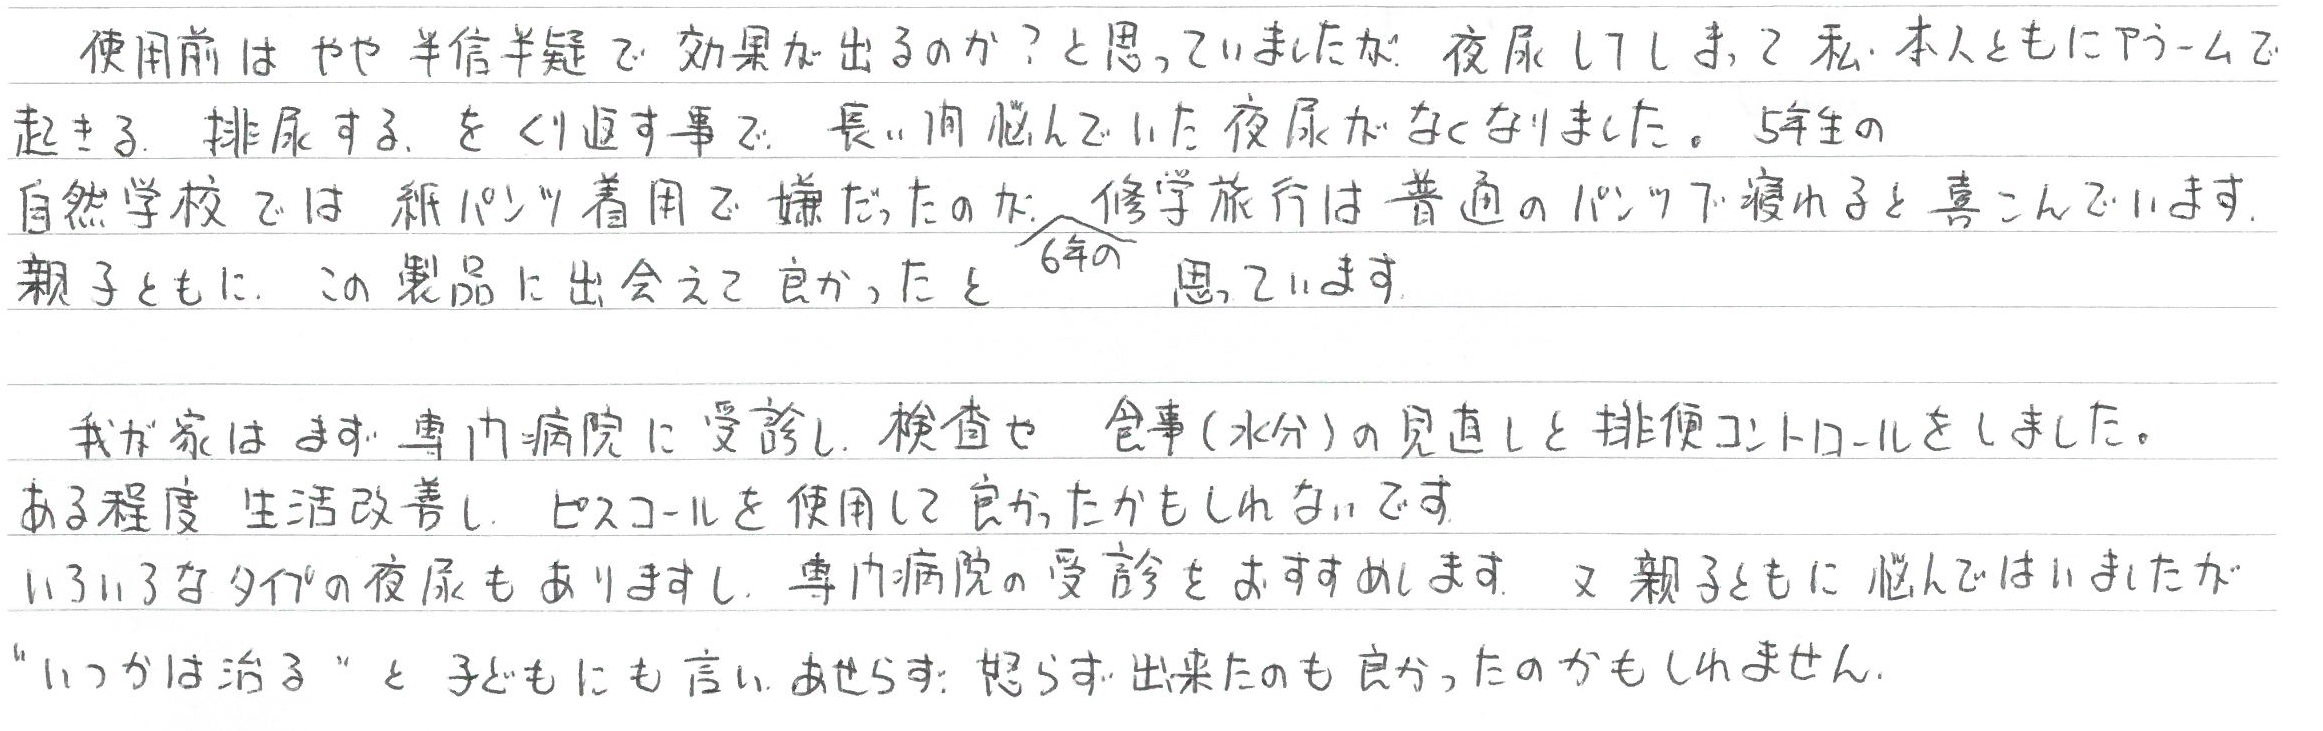 使用前は やや 半信半疑で 効果が出るのか?と思っていましたが、夜尿してしまって 私・本人ともにアラームで
起きる、排尿する、を くり返す事で、長い間 悩んでいた 夜尿が なくなりました。 5年生の
自然学校では 紙パンツ着用で 嫌だったのが、修学旅行は普通のパンツで寝れると喜こんでいます。
6年の
親子ともに、この製品に出会えて良かったと 思っています。
我が家は まず 専門病院に受診し、検査や 食事(水分)の見直しと排便コントロールをしました。
ある程度 生活改善し、ピスコールを使用して良かったかもしれないです
いろいろなタイプの夜尿もありますし、専門病院の受診をおすすめします。 又 親子ともに 悩んではいましたが
"いつかは治る"と 子どもにも言い、あせらず、怒らず 出来たのも良かったのかもしれません。